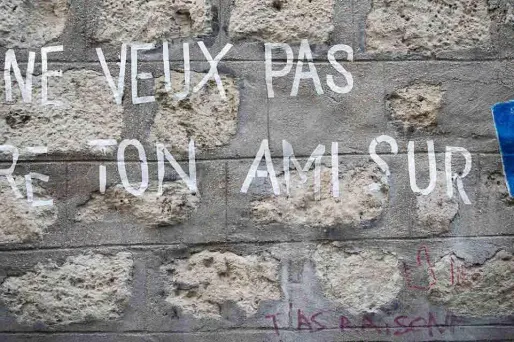 NE VEUX PAS
RE TON AMI SUR
T'AS RAISON